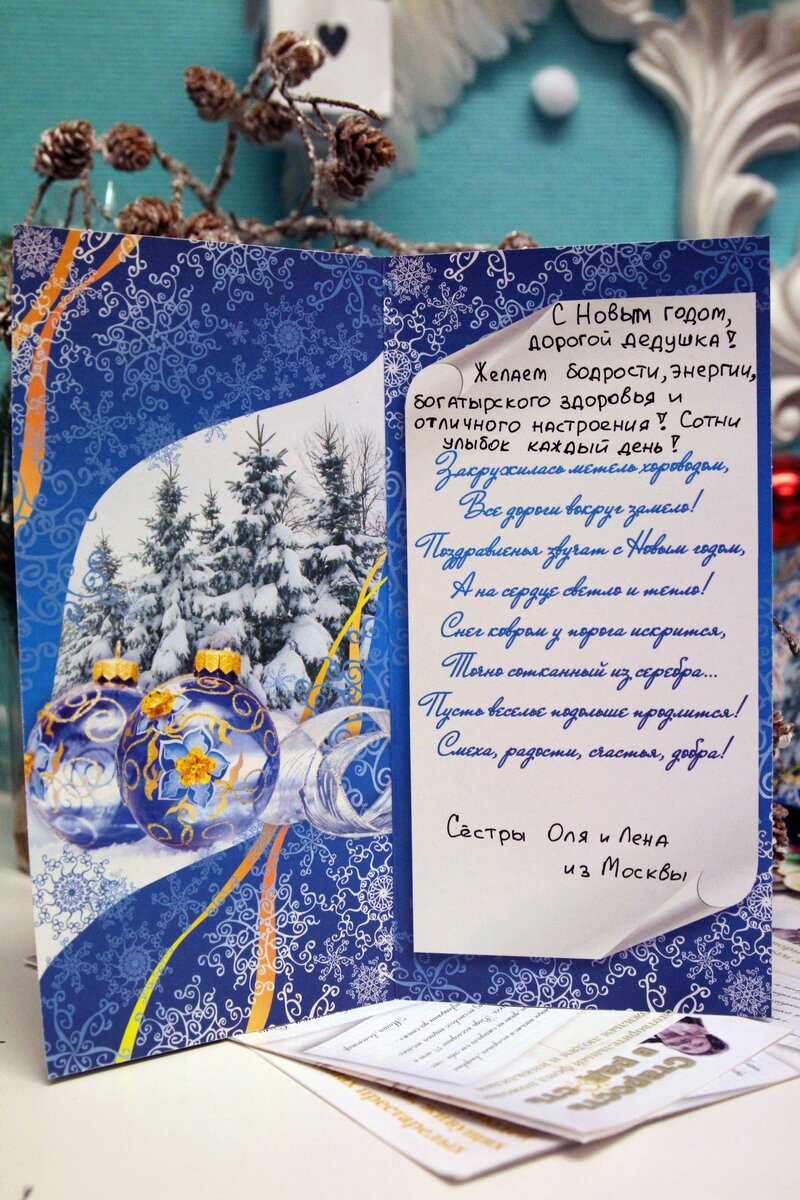 С Новым годом,
дорогой дедушка!
Желаем бодрости, энергии,
богатырского здоровья и
отличного настроения! Сотни
улыбок каждый день!
Закружилась метель хороводом,
Все дороги вокруг замело!
Поздравленья звучат с Новым годом,
А на сердце светло и тепло!
Снег ковром у порога искрится,
Точно сотканный из серебра...
Пусть веселье подольше продлится!
Смеха, радости, счастья, добра!
Сёстры Оля и Лена
из Москвы
Старость
в радость